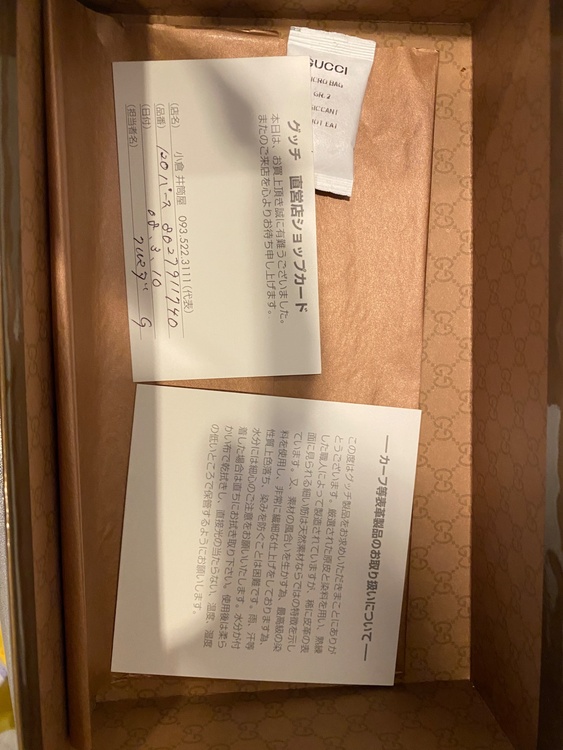 GUCCI
グッチ 直営店ショップカード
本日は、お買上頂き誠に有難うございました。
またのご来店を心よりお待ち申し上げます。
(店名) 小倉 井筒屋 093.522.3111(代表)
(品番) 120バース 8027911740
(日付) 08.3.10
(担当者名)
―カーフ等表革製品のお取り扱いについて―
この度はグッチ製品をお求めいただきまことにありが
とうございます。厳選された原皮と染料を用い、熟練
した職人によって製造されていますが、稀に皮革の表
面に見られる細い筋は天然素材ならではの特徴を示し
ています。又、素材の風合いを生かす為、最高級の染
料を使用し、非常に繊細な仕上げをしております為、
性質上色落ち、染みを防ぐことは困難です。雨、汗等
水分には細心のご注意をお願いいたします。水分が付
着した場合は直ちにお拭き取り下さい。使用後は柔ら
かい布で乾拭きし、直接光の当たらない、温度、湿度
の低いところで保管するようにお願いします。